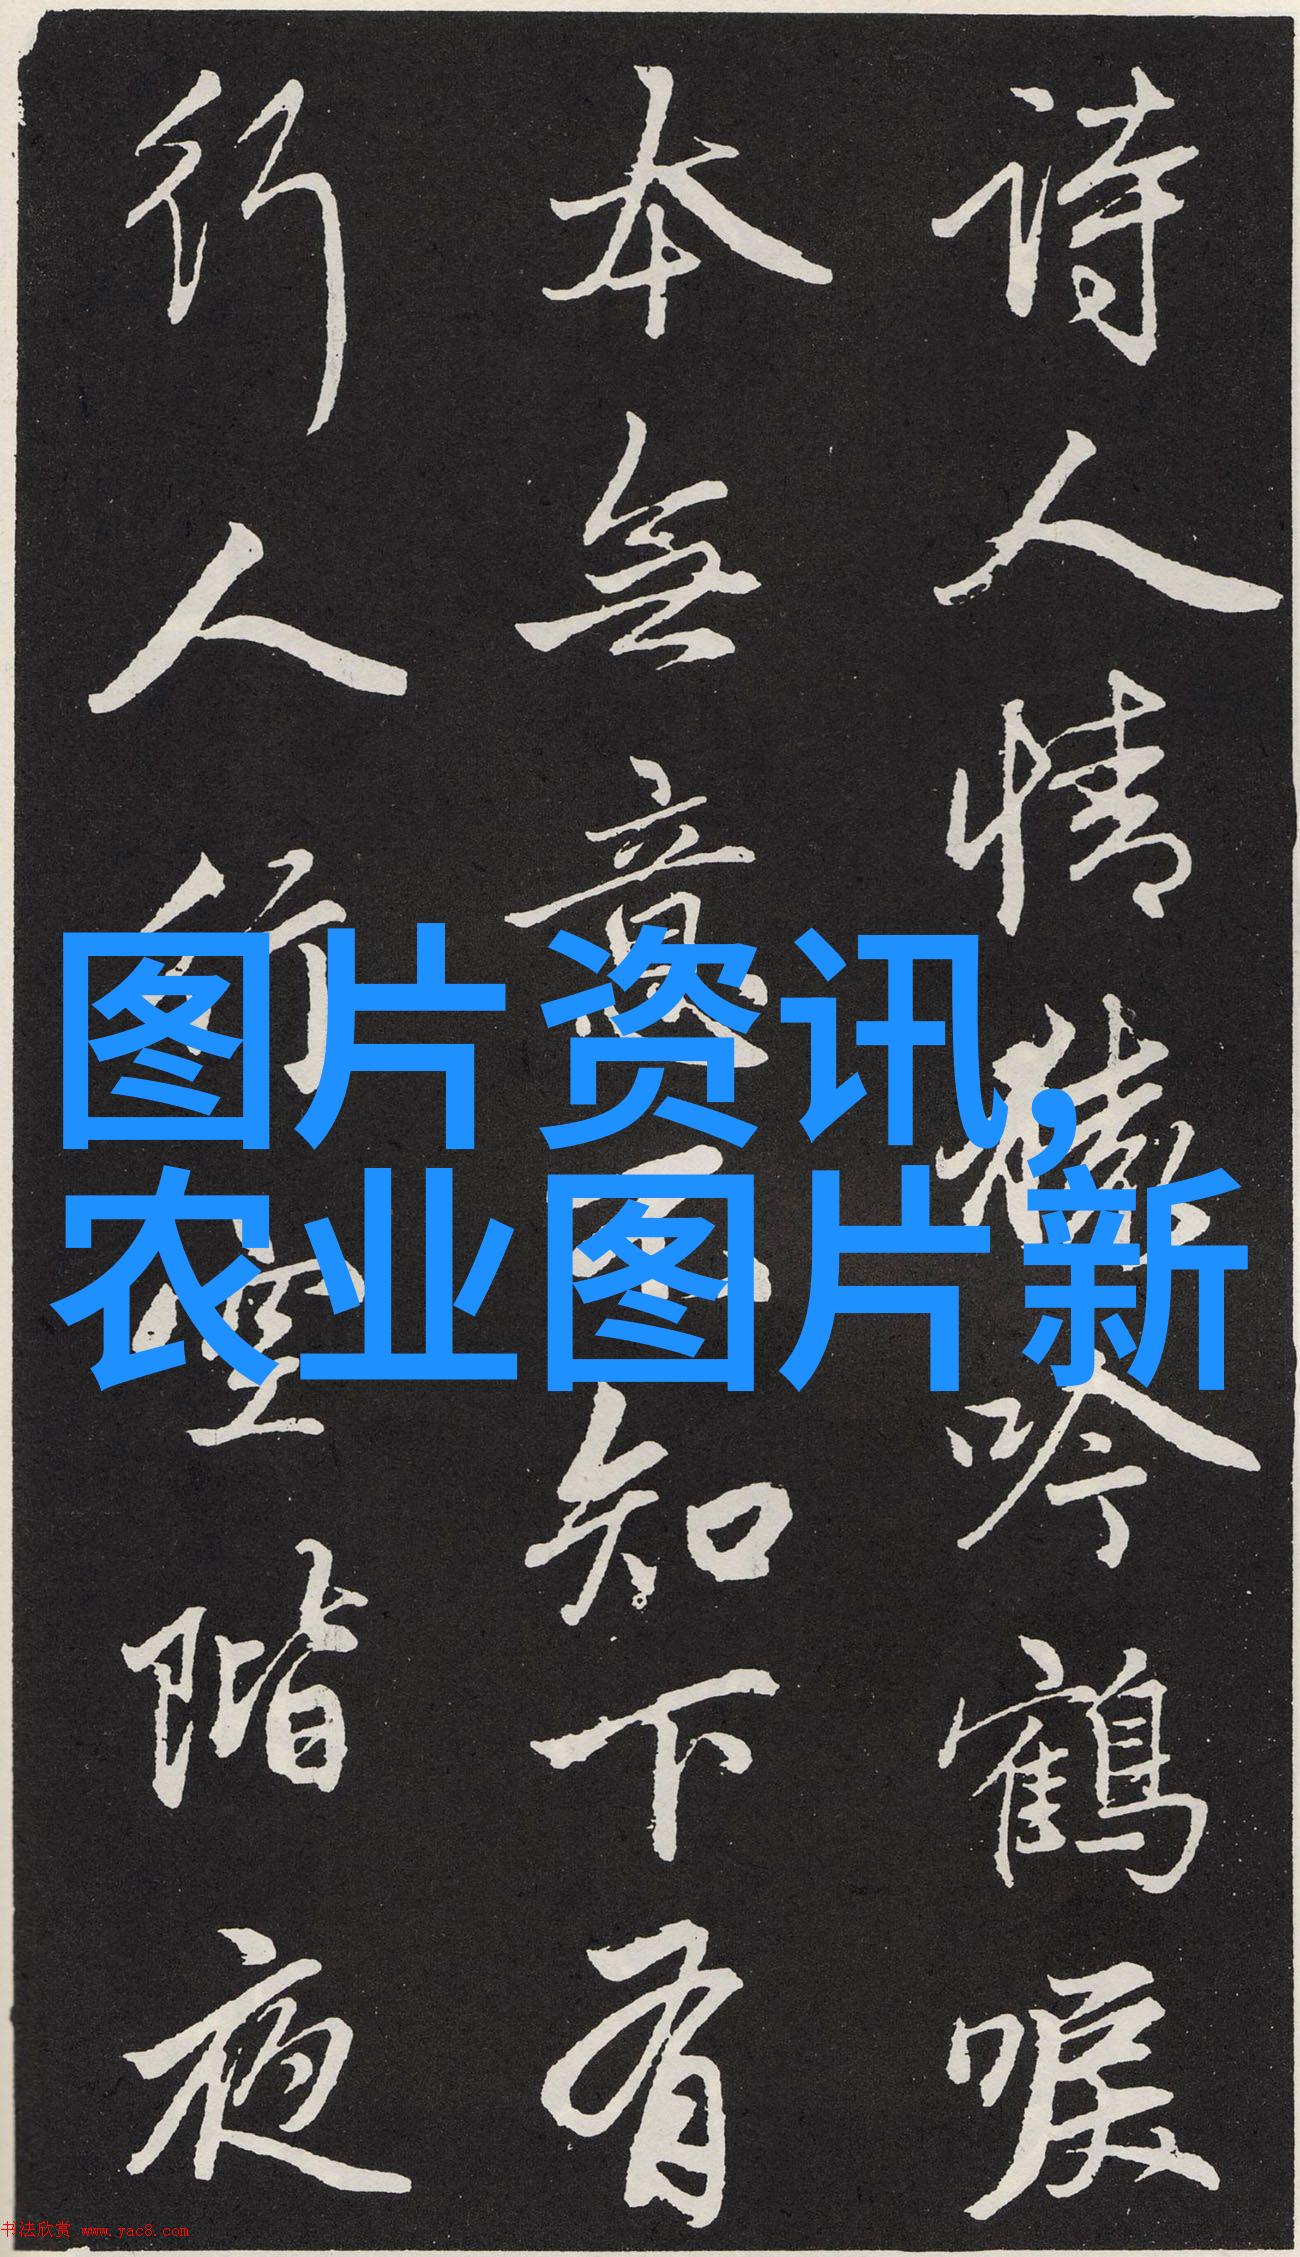 詩人情猿吟鶴唳
本無意不知下有
行人行空階夜
图片资讯,
农业图片新
书法欣赏 www.yac8.com